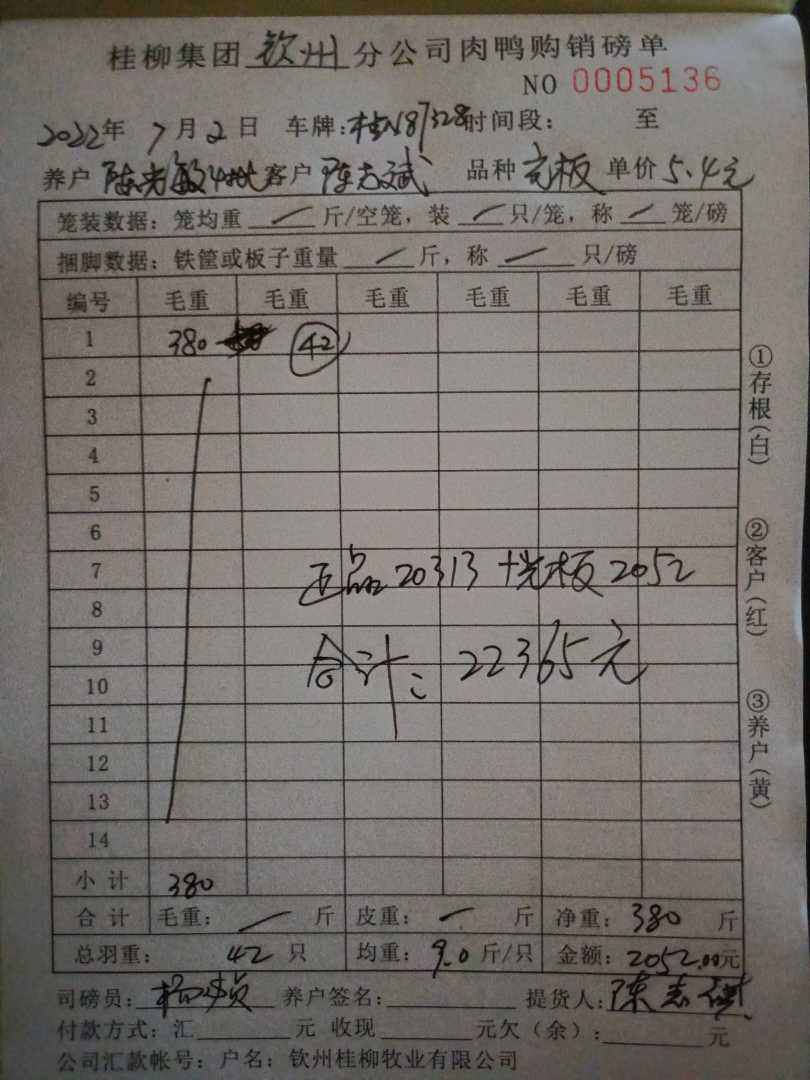 桂柳集团 钦州 分公司肉鸭购销磅单
NO 0005136
2022年 7月2日 车牌:桂N87328 时间段: 至
养户 陈光敏4批 客户 陈志斌 品种 光板 单价 5.4元
笼装数据: 笼均重 — 斤/空笼, 装 — 只/笼, 称 — 笼/磅
捆脚数据: 铁筐或板子重量 — 斤, 称 — 只/磅
编号 毛重 毛重 毛重 毛重 毛重 毛重
1 380 42
2
3
4
5
6
7 正品20313+光板2052
8
9
合计: 22365元
10
11
12
13
14
小计 380
合计 毛重: — 斤 皮重: — 斤 净重: 380 斤
总羽重: 42 只 均重: 9.0 斤/只 金额: 2052.00元
司磅员: 养户签名: 提货人: 陈志斌
付款方式: 汇 元 收现 元欠(余): 元
公司汇款帐号: 户名: 钦州桂柳牧业有限公司
①存根(白)
②客户(红)
③养户(黄)